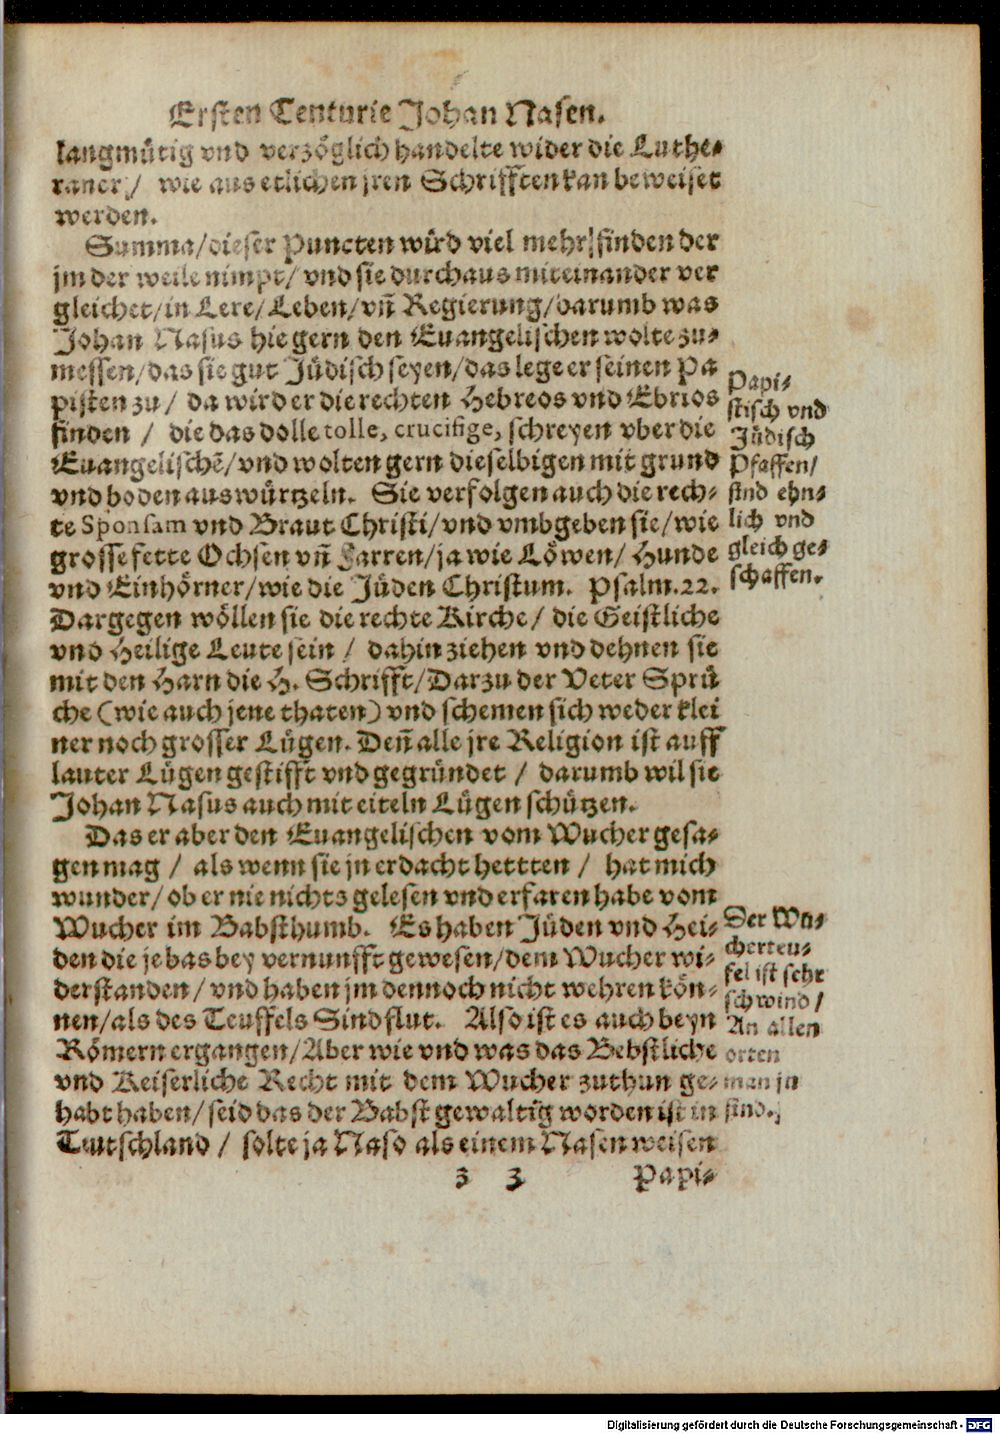 Ersten Centurie Johan Nasen.
langmütig vnd verzöglich handelte wider die Luthe-
raner / wie aus etlichen jren Schrifften kan beweiset
werden.
Summa/dieser Puncten wird viel mehr finden der
jm der weile nimpt/ vnd sie durchaus miteinander ver
gleichet/in Lere/Leben/vñ Regierung/darumb was
Johan Nasus hie gern den Euangelischen wolte zu-
messen/das sie gut Jüdisch seyen/das lege er seinen Pa
pisten zu / da wird er die rechten Hebreos vnd Ebrios
finden / die das dolle tolle, crucifige, schreyen vber die
Euangelischẽ/vnd wolten gern dieselbigen mit grund
vnd boden auswürtzeln. Sie verfolgen auch die rech-
te Sponsam vnd Braut Christi/vnd vmbgeben sie/wie
grosse fette Ochsen vñ Farren/ja wie Löwen/ Hunde
vnd Einhörner/wie die Jüden Christum. Psalm.22.
Dargegen wöllen sie die rechte Kirche / die Geistliche
vnd Heilige Leute sein / dahin ziehen vnd dehnen sie
mit den Harn die H. Schrifft/Darzu der Veter Sprü
che (wie auch jene thaten) vnd schemen sich weder klei
ner noch grosser Lügen. Deñ alle jre Religion ist auff
lauter Lügen gestifft vnd gegründet / darumb wil sie
Johan Nasus auch mit eiteln Lügen schützen.
Papi-
stisch vnd
Jüdisch
Pfaffen/
sind ehn-
lich vnd
gleich ge-
schaffen.
Das er aber den Euangelischen vom Wucher gesa-
gen mag / als wenn sie jn erdacht hettten / hat mich
wunder/ ob er nie nichts gelesen vnd erfaren habe vom
Wucher im Babsthumb. Es haben Jüden vnd Hei-
den die je bas bey vernunfft gewesen/dem Wucher wi-
derstanden / vnd haben jm dennoch nicht wehren kön-
nen/als des Teuffels Sindflut. Also ist es auch beyn
Römern ergangen/Aber wie vnd was das Bebstliche
vnd Keiserliche Recht mit dem Wucher zuthun ge-
habt haben/ seid das der Babst gewaltig worden ist in
Teutschland / solte ja Naso als einem Nasenweisen
Der Wu-
cherteu-
fel ist sehr
schwind /
An allen
orten
man jn
find.
3 3 Papi-
Digitalisierung gefördert durch die Deutsche Forschungsgemeinschaft - DFG